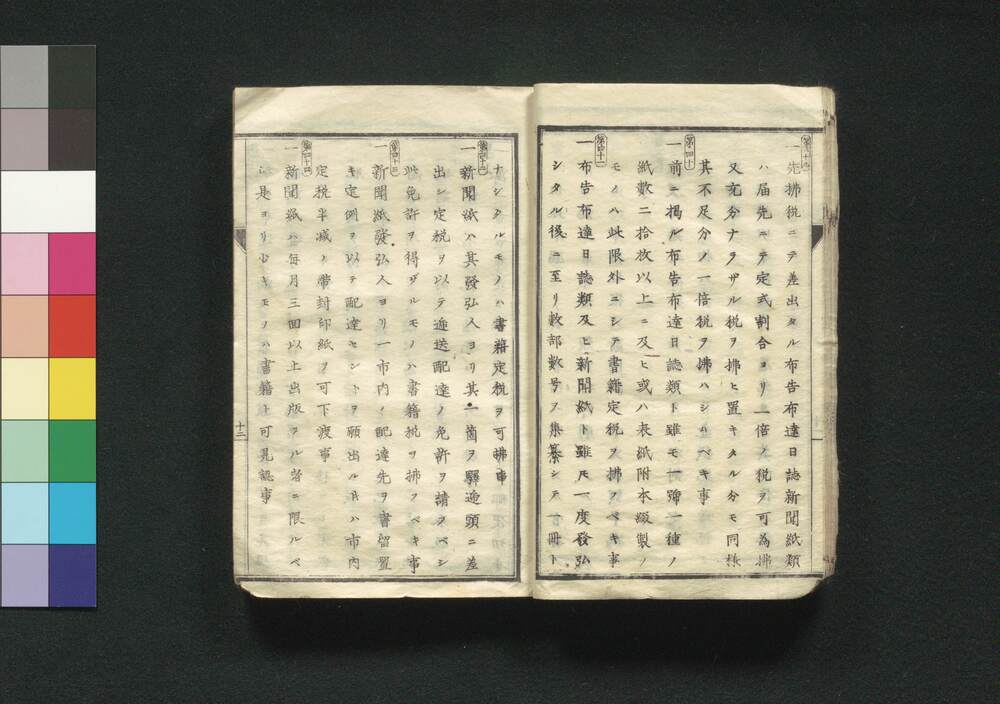 第三十九
一先拂税ニテ差出タル布告布達日誌新聞紙類
ハ届先ニテ定式割合ヨリ一倍ノ税ヲ可為拂
又充分ナラザル税ヲ拂ヒ置キタル分モ同様
其不足分ノ一倍税ヲ拂ハシムベキ事
第四十
一前ニ掲ル布告布達日誌類ト雖モ一號一種ノ
紙數二拾枚以上ニ及ヒ或ハ表紙附本綴製ノ
モノハ此限外ニシテ書籍定税ヲ拂フベキ事
第四十一
一布告布達日誌類及ヒ新聞紙ト雖モ一度發弘
シタル後ニ至リ數部數号ヲ集纂シテ一冊ト
ナシタルモノハ書籍定税ヲ可拂事
第四十二
一新聞紙ハ其發弘人ヨリ其一箇ヲ驛逓頭ニ差
出シ定税ヲ以テ逓送配達ノ免許ヲ請フベシ
此免許ヲ得ザルモノハ書籍税ヲ拂フベキ事
第四十三
一新聞紙發弘人ヨリ一市内ノ配達先ヲ書留置
キ定例ヲ以テ配達セントヲ願出ル片ハ市内
定税半減ノ帯封印紙ヲ可下渡事
第四十四
一新聞紙ハ毎月三回以上出版スル者ニ限ルベ
シ是ヨリ少キモノハ書籍ト可見認事
十三